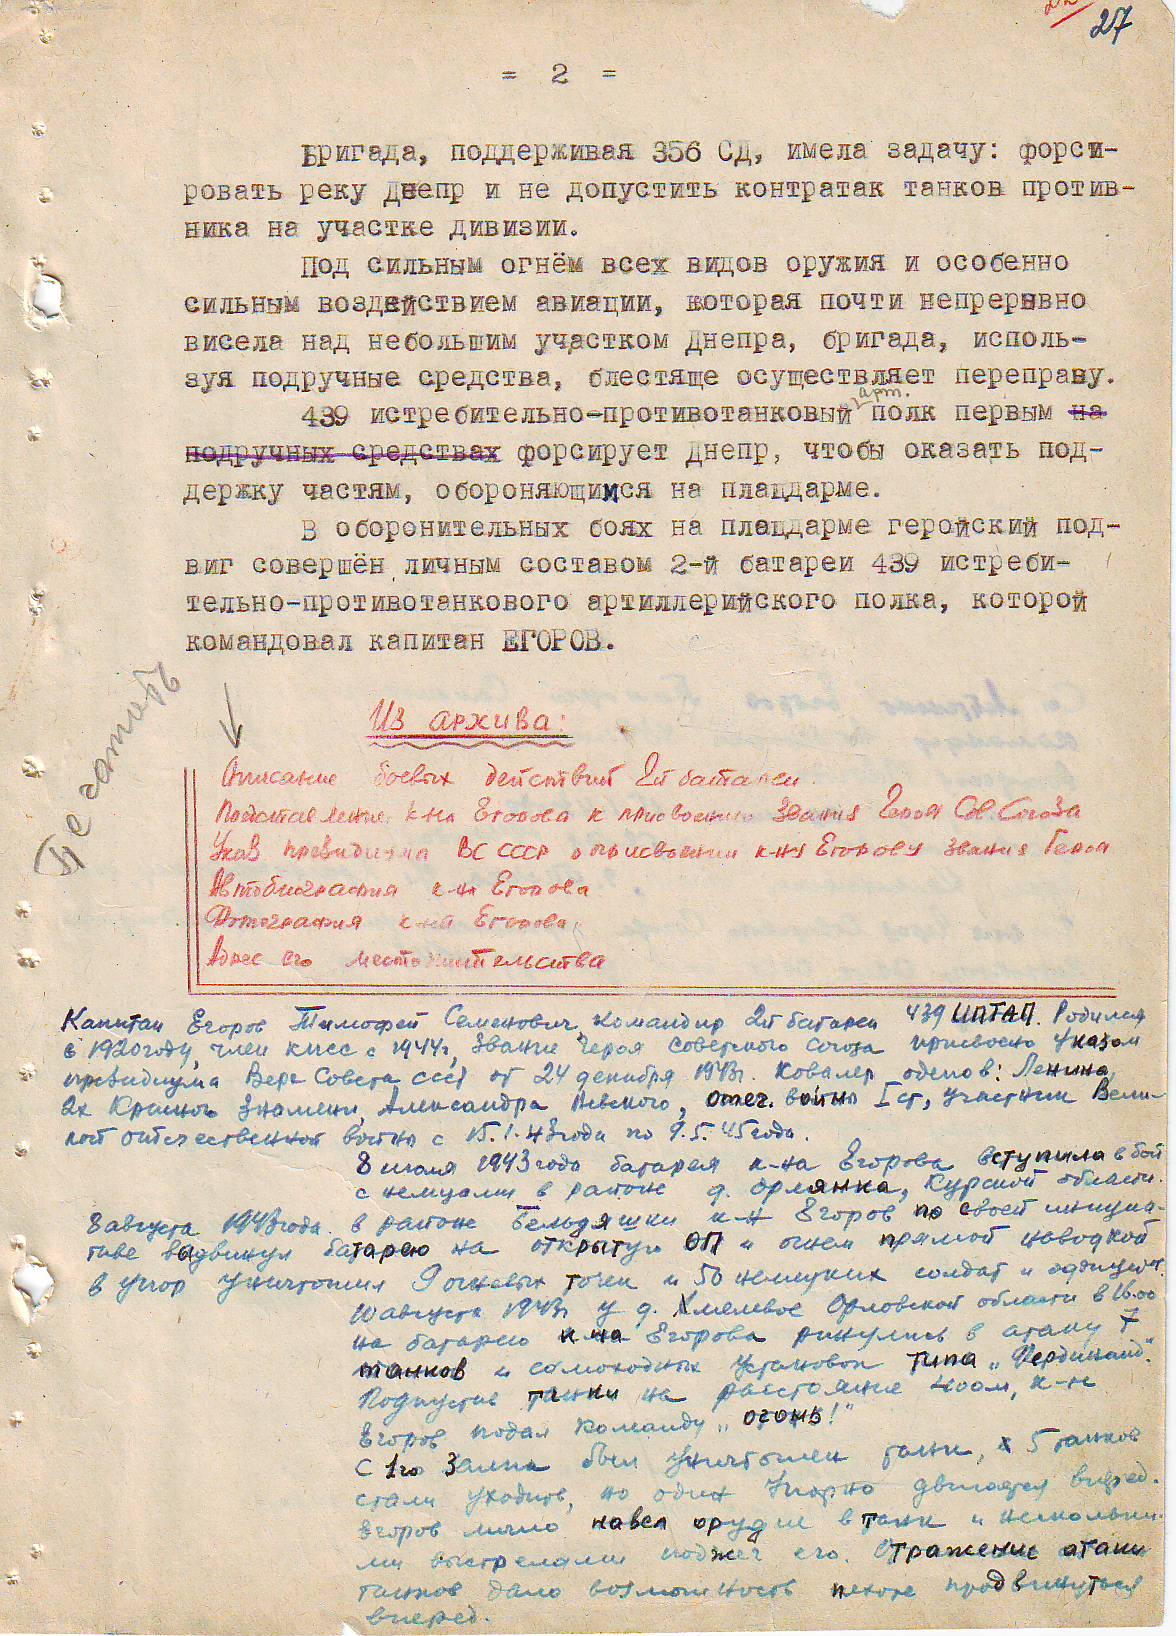 27
= 2 =
Бригада, поддерживая 356 СД, имела задачу: форси-
ровать реку Днепр и не допустить контратак танков против-
ника на участке дивизии.
Под сильным огнём всех видов оружия и особенно
сильным воздействием авиации, которая почти непрерывно
висела над небольшим участком Днепра, бригада, исполь-
зуя подручные средства, блестяще осуществляет переправу.
арт.
439 истребительно-противотанковый полк первым на
подручных средствах форсирует Днепр, чтобы оказать под-
держку частям, обороняющимся на плацдарме.
В оборонительных боях на плацдарме геройский под-
виг совершён личным составом 2-й батареи 439 истреби-
тельно-противотанкового артиллерийского полка, которой
командовал капитан ЕГОРОВ.
Печатать
Из архива:
Описание боевых действий 2й батареи
Представление к-на Егорова к присвоению звания Героя Сов. Союза
Указ президиума ВС СССР о присвоении к-ну Егорову звания Героя
Автобиография к-на Егорова
Фотография к-на Егорова
Адрес его местожительства
Капитан Егоров Тимофей Семенович, командир 2й батареи 439 ИПТАП. Родился
в 1920 году, член КПСС с 1944г, звание Героя Советского Союза присвоено Указом
президиума Верх Совета СССР от 24 декабря 1943г. Кавалер орденов: Ленина,
2х Красного Знамени, Александра Невского, отеч. войны I ст, участник Вели-
кой отечественной войны с 15.1.43 года по 9.5.45 года.
8 июля 1943 года батарея к-на Егорова вступила в бой
с немцами в районе д. Орлянка, Курской области.
8 августа 1943 года в районе Бельдяшки к-н Егоров по своей инициа-
тиве выдвинул батарею на открытую ОП и огнем прямой наводкой
в упор уничтожил 9 огневых точек и 50 немецких солдат и офицеров.
10 августа 1943г у д. Хмелевое Орловской области в 16.00
на батарею к-на Егорова ринулись в атаку 7
танков и самоходных установок типа „Фердинанд".
Подпустив танки на расстояние 400м, к-н
Егоров подал команду „огонь!"
С 1го залпа был уничтожен танк, 5 танков
стали уходить, но один упорно двигался вперед.
Егоров лично навел орудие в танк и нескольки-
ми выстрелами поджег его. Отражение атаки
танков дало возможность пехоте продвинуться
вперед.